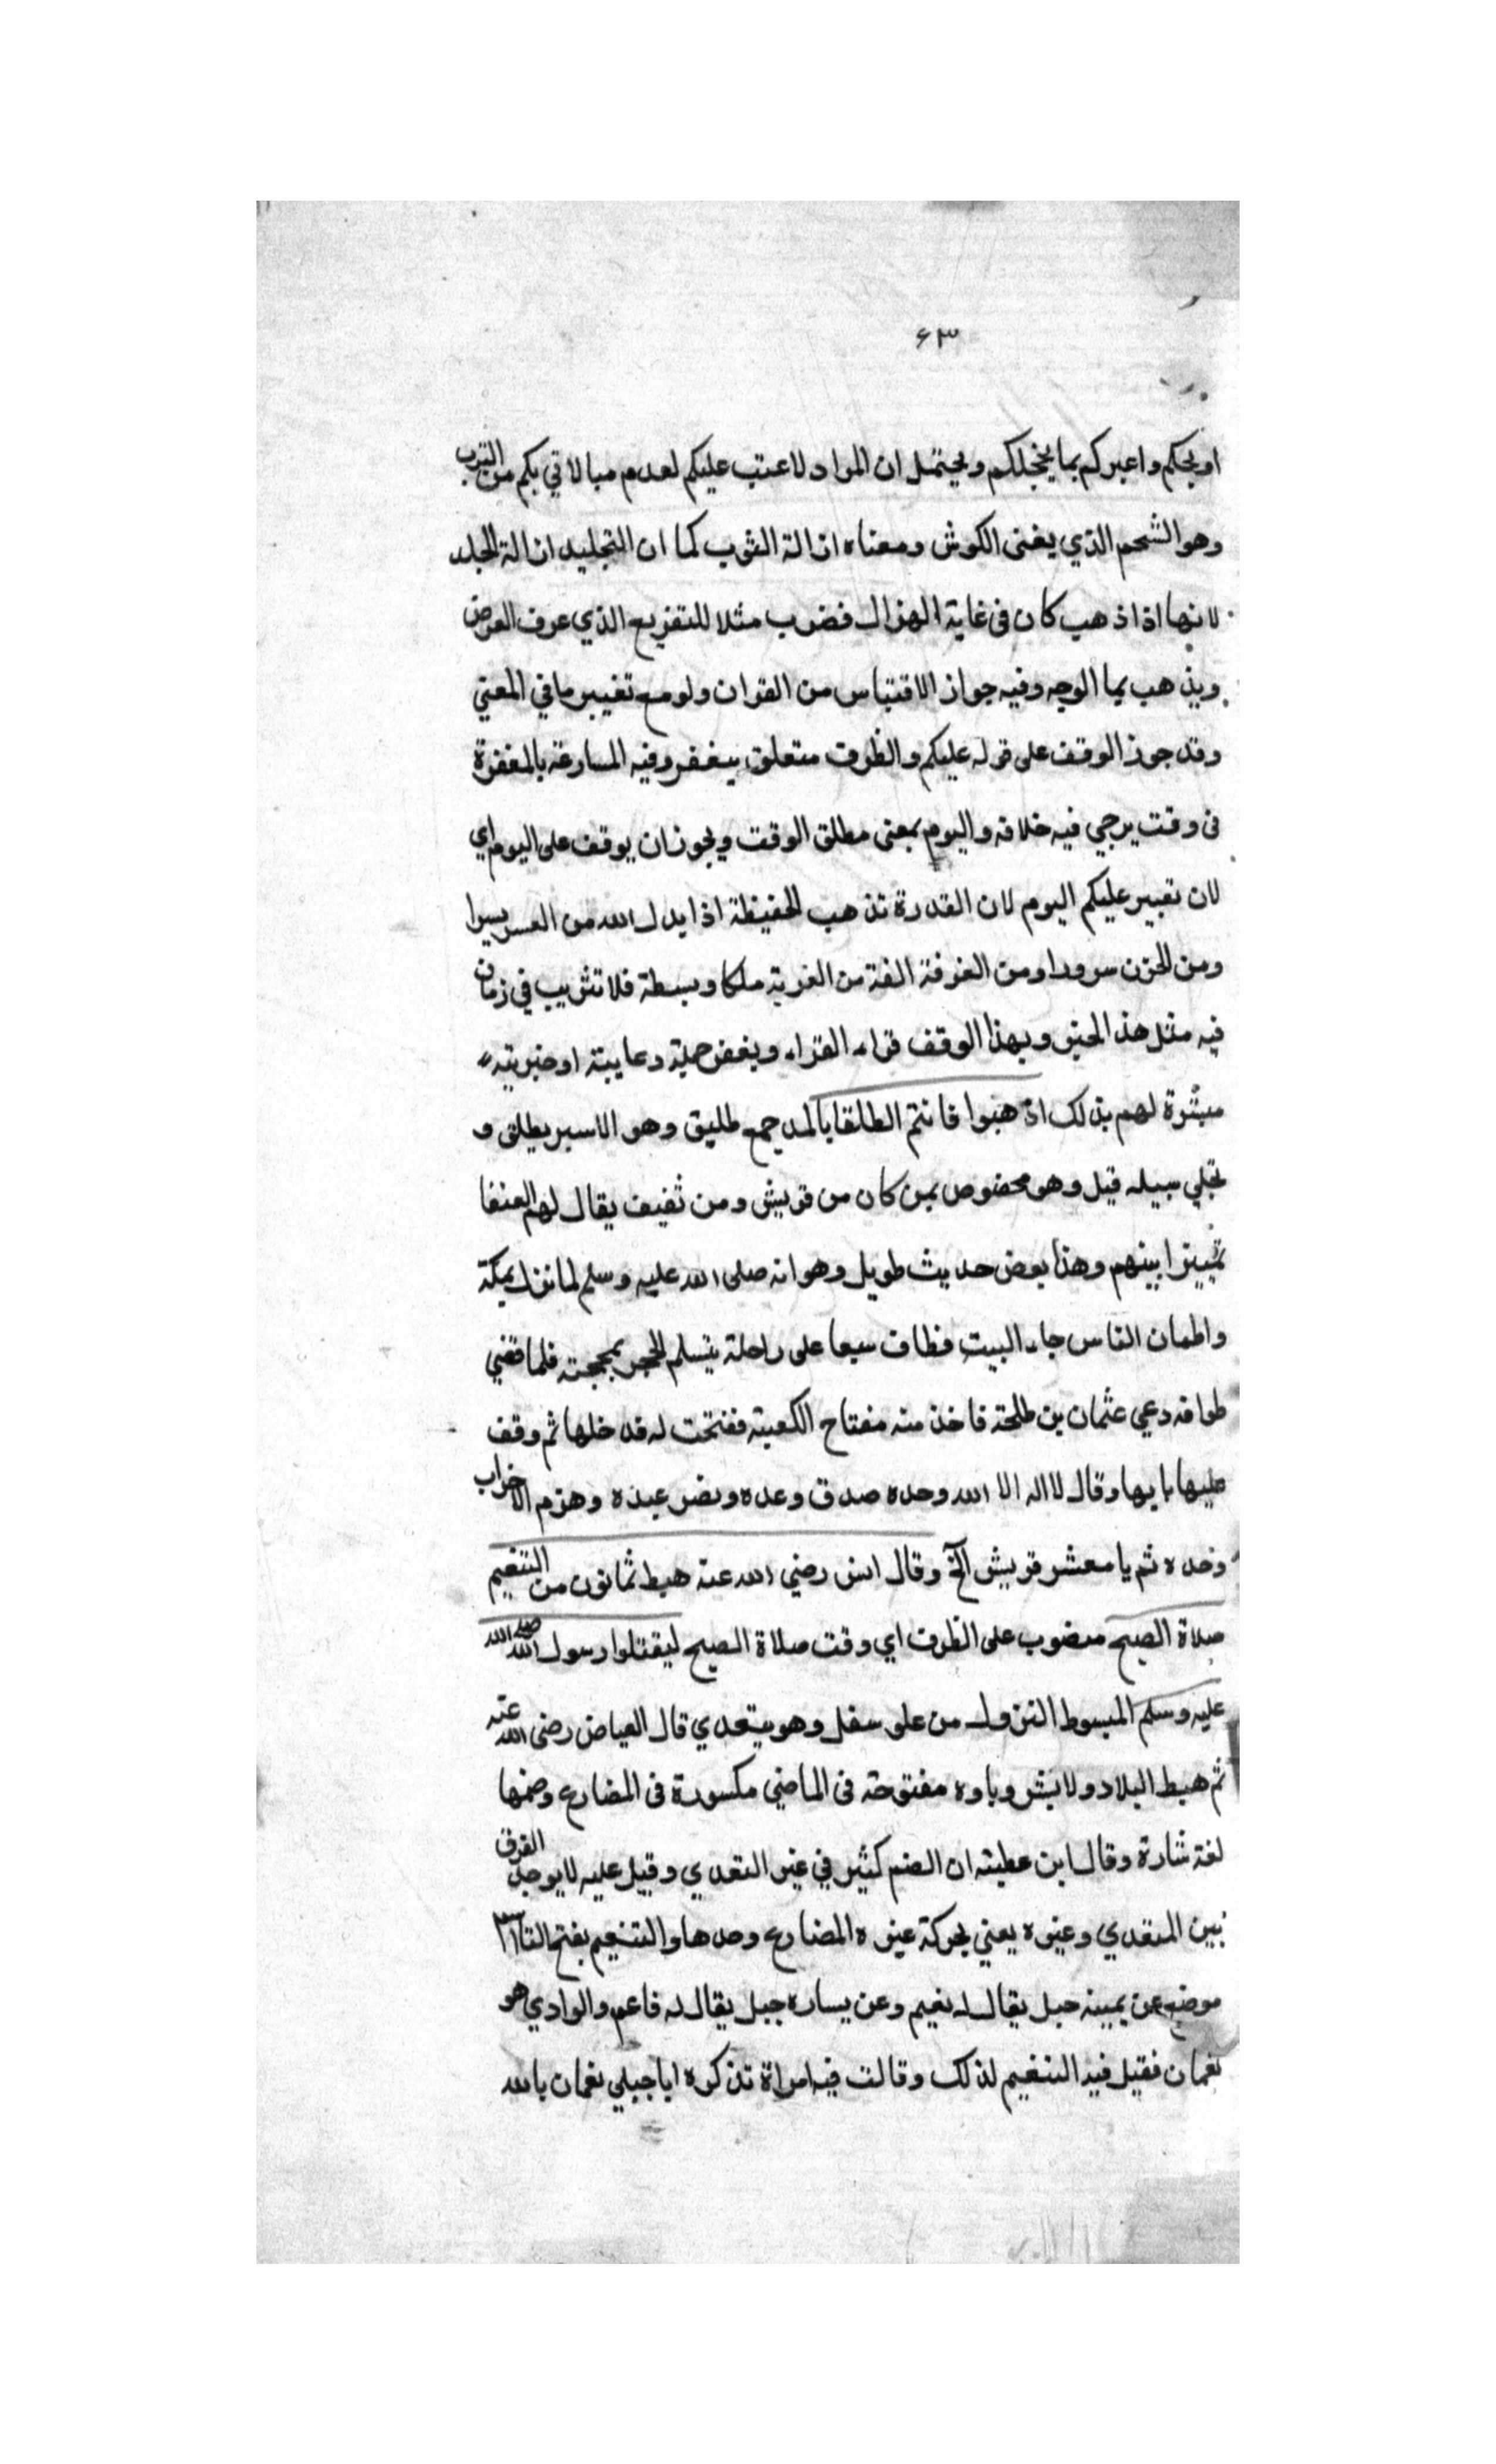 ٦٣
اوبخكم واعيركم بما يخجلكم ويحتمل ان المراد لا عتب عليكم لعدم مبالاتي بكم من الثرب
وهو الشحم الذي يغشى الكرش ومعناه ازالة الثوب كما ان التجليد ازالة الجلد
لانها اذا ذهب كان في غاية الهزال فضرب مثلا للتقريع الذي عرف العرض
ويذهب بما الوجه وفيه جواز الاقتباس من القران ولو مع تغيير ما في المعني
وقد جوز الوقف على قوله عليكم والظرف متعلق بيغفر وفيه المسارعة بالمغفرة
في وقت يرجي فيه خلافه واليوم بمعنى مطلق الوقت ويجوز ان يوقف على اليوم اي
لان تعبير عليكم اليوم لان القدرة تذهب الحفيظة اذا بدل الله من العسر يسرا
ومن الحزن سرورا ومن الفرقة الفة من الغربة ملكا وبسطة فلا تثريب في زمان
فيه مثل هذ الحين وبهذا الوقف قراء القراء ويغفر جملة دعايية او خبرية
مبشرة لهم بذلك اذهبوا فانتم الطلقا بالمد جمع طليق وهو الاسير يطلق و
تخلي سبيله قيل وهو مخصوص بمن كان من قريش ومن ثقيف يقال لهم العتقا
تمييزا بينهم وهذا بعض حديث طويل وهو انه صلى الله عليه وسلم لما نزل بمكة
واطمان الناس جاء البيت فطاف سبعا على راحلة يتسلم الحجر بمحجنه فلما قضي
طوافه دعي عثمان بن طلحة فاخذ منه مفتاح الكعبة ففتحت له فدخلها ثم وقف
عليها بابها وقال لا اله الا الله وحده صدق وعده ونصر عبده وهزم الاحزاب
وحده ثم يا معشر قريش الخ وقال انس رضي الله عنه هبط ثمانون من التنعيم
صلاة الصبح منصوب على الظرف اي وقت صلاة الصبح ليقتلوا رسول الله صلى الله
عليه وسلم المبسوط النزول من علو سفل وهو يتعدي قال العباض رضى الله عنه
ثم هبط البلاد ولا بشر وباوه مفتوحة في الماضي مكسورة في المضارع وضمها
لغة شارة وقال ابن عطية ان الضم كثير في غير التعدي وقيل عليه لا يوجد الفرق
بين المتعدي وغيره يعني بحركة عين المضارع وحدها والتنعيم بفتح التا
موضع عن يمينه جبل يقال له نعيم وعن يساره جبل يقال له فاعم والوادي هو
نعمان فقيل فيه التنعيم لذلك وقالت فيه امراة تذكره ايا جبلي نعمان بالله